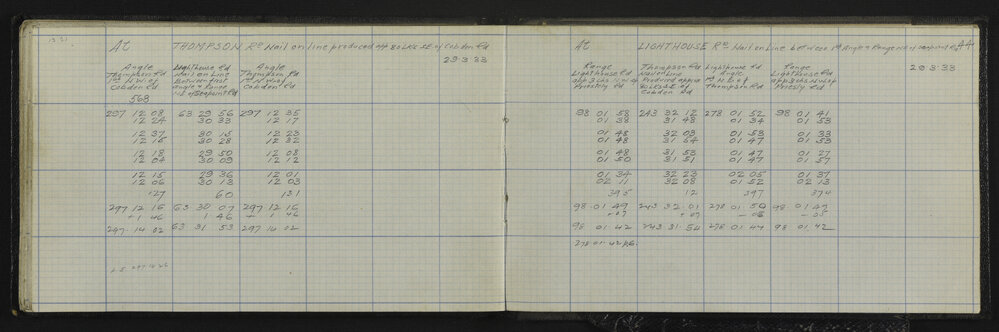 At THOMPSON Rd Nail on line produced app 80 Lks S.E of Cobden Rd
29·3·33
Angle Lighthouse Rd Angle
Thompson Rd Nail on Line Thompson Rd
1st N.W. of Between first 1st N.W. of
Cobden Rd Angle & Range Cobden Rd
568
297 12 08 63 29 56 297 12 35
12 24 30 33 12 17
12 37 30 15 12 23
12 15 30 28 12 32
12 18 29 50 12 08
12 04 30 09 12 12
12 15 29 36 12 01
12 06 30 13 12 03
127 60 131
297 12 16 63 30 07 297 12 16
+1 46 1 46 1 46
297 14 02 63 31 53 297 14 02
At LIGHTHOUSE Rd Nail on Line between 1st Angle & Range 44
20·3·33
Range Thompson Rd Lighthouse Rd Range
Lighthouse Rd Nail on Line Angle Lighthouse Rd
app 3 chs N.W. of Produced approx 1st N.E. of app 3 chs N.W. of
Priestly Rd 80 Lks S.E. of Thompson Rd Priestly Rd
Cobden Rd
98 01 58 243 32 12 278 01 52 98 01 41
01 38 31 48 01 34 01 53
01 48 32 03 01 53 01 33
01 48 31 54 01 47 01 53
01 48 31 53 01 47 01 27
01 50 31 51 01 47 01 57
01 34 32 23 02 05 01 37
02 11 32 08 01 52 02 13
395 12 397 374
98 01 49 243 32 01 278 01 50 98 01 47
98 01 42 243 31 54 278 01 44 98 01 42
278 01 42